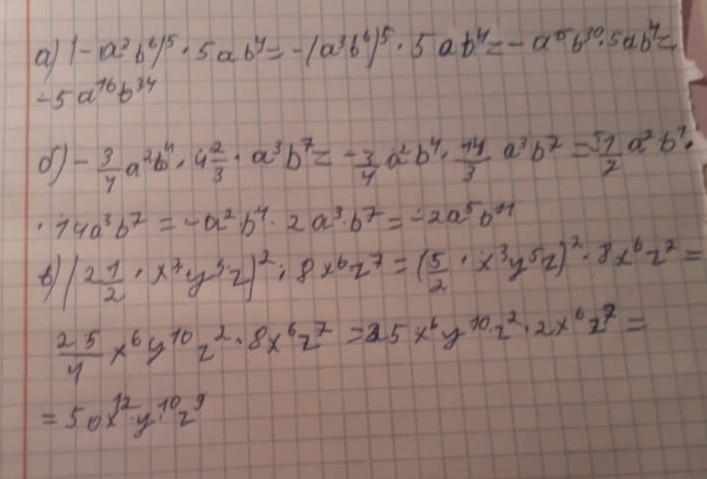 а) (-a³b⁶)⁵ · 5ab⁴ = -(a³b⁶)⁵ · 5ab⁴ = -a¹⁵b³⁰ · 5ab⁴ =
-5a¹⁶b³⁴
б) - 3/4 a²b⁴ · 4 2/3 · a³b⁷ = - 3/4 a²b⁴ · 14/3 a³b⁷ = 1/2 a²b⁴ ·
· 14a³b⁷ = -a²b⁴ · 2a³ · b⁷ = -2a⁵b¹¹
в) (2 1/2 · x³y⁵z)² · 8x⁶z⁷ = (5/2 · x³y⁵z)² · 8x⁶z⁷ =
25/4 x⁶y¹⁰z² · 8x⁶z⁷ = 25x⁶y¹⁰z² · 2x⁶z⁷ =
= 50x¹²y¹⁰z⁹